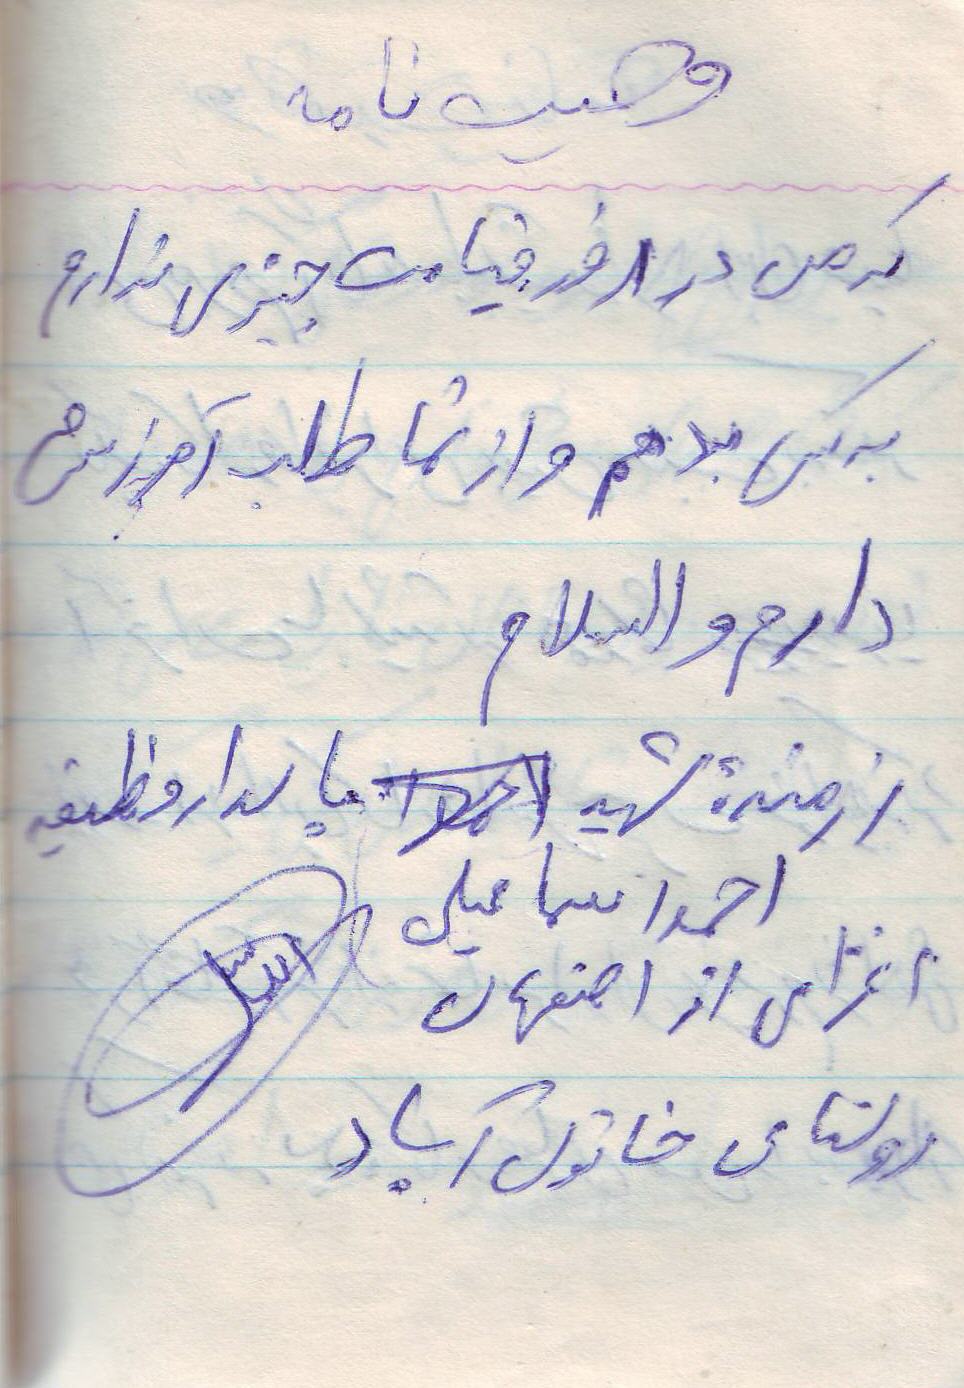 وصیت نامه
که من در روز قیامت چیزی ندارم
به کس بدهم و از شما طلب آمرزش
دارم والسلام
رزمنده شهید پاسدار وظیفه
احمد اسماعیلی
اعزامی از اصفهان
روستای خاتون آباد